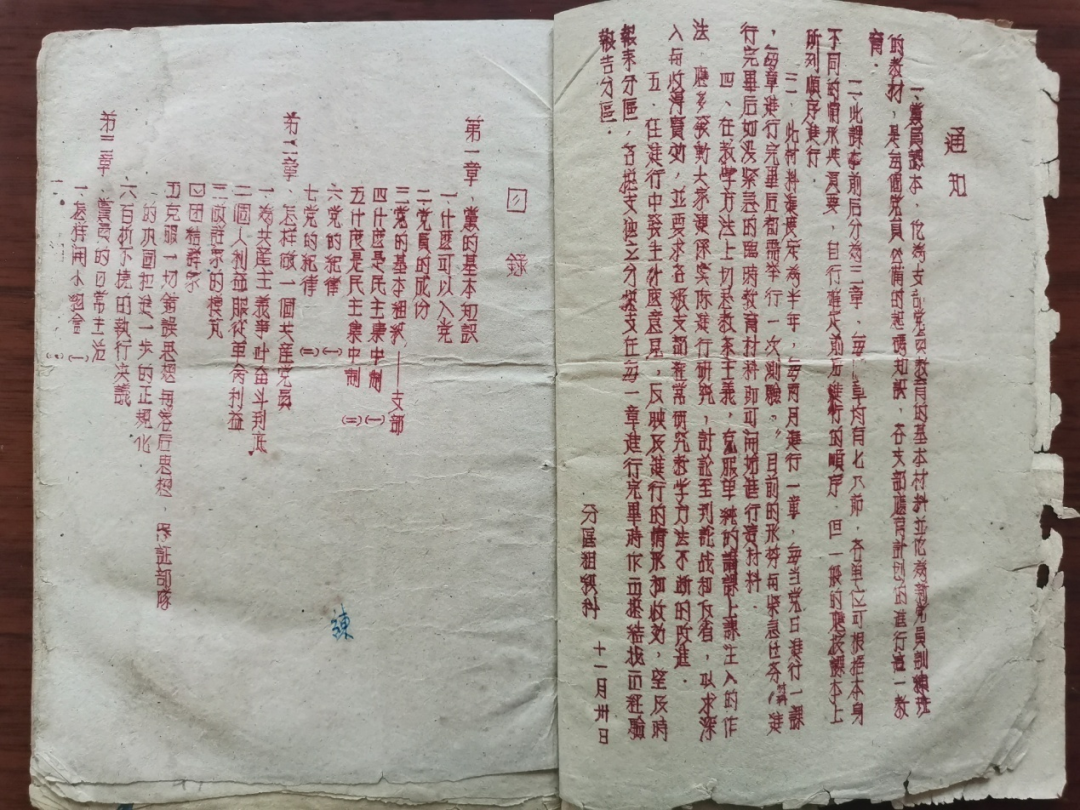 通知
一、黨員課本，作為支部党員教育的基本材料並作為新党員訓練班
的教材，是每個党員必備的起碼知識，各支部應有計划的進行這一教
育．
二、此課本前后分為三章，每一章均有七八節，各單位可根据本身
不同的情形與需要，自行確定前后進行的順序．但一般的應按課本上
所列順序進行．
三．此材料進度定為半年，每兩月進行一章，每当党日進行一課
，每章進行完畢后都需举行一次測驗。目前的形势有緊急任务，進
行完畢后如没緊急的臨時教育材料即可開始進行這材料．
四、在教学方法上切忌教条主義，克服單純的講課上課注入的作
法．應多發動大家連系实际進行研究，討論至判訟战和反省，以求深
入与收得實効，並要求各級支部經常研究教学方法不断的改進．
五．在進行中發生什庅意見，反映及進行的情形和收効，望及時
報来分區，各総支独之分総支在每一章進行完畢時作一面総結找出經驗
報告分區．
分區組織科 十一月卅日
目錄
第一章、黨的基本知識
一什庅可以入党
二党員的成份
三党的基本組織——支部
四什庅是民主集中制（一）
五什庅是民主集中制（二）
六党的紀律（一）
七党的紀律（二）
第二章、怎样做一個共産党員
一、為共産主義事叶奋斗到底
二個人利益服從革命利益
三做群众的模范
四团結群众
五克服一切錯誤思想与落后思想、保証部隊
的巩固和進一步的正規化
六百折不撓的执行决議
第三章、黨員的日常生活
一、怎样開小組會（一）
（二）
鍊